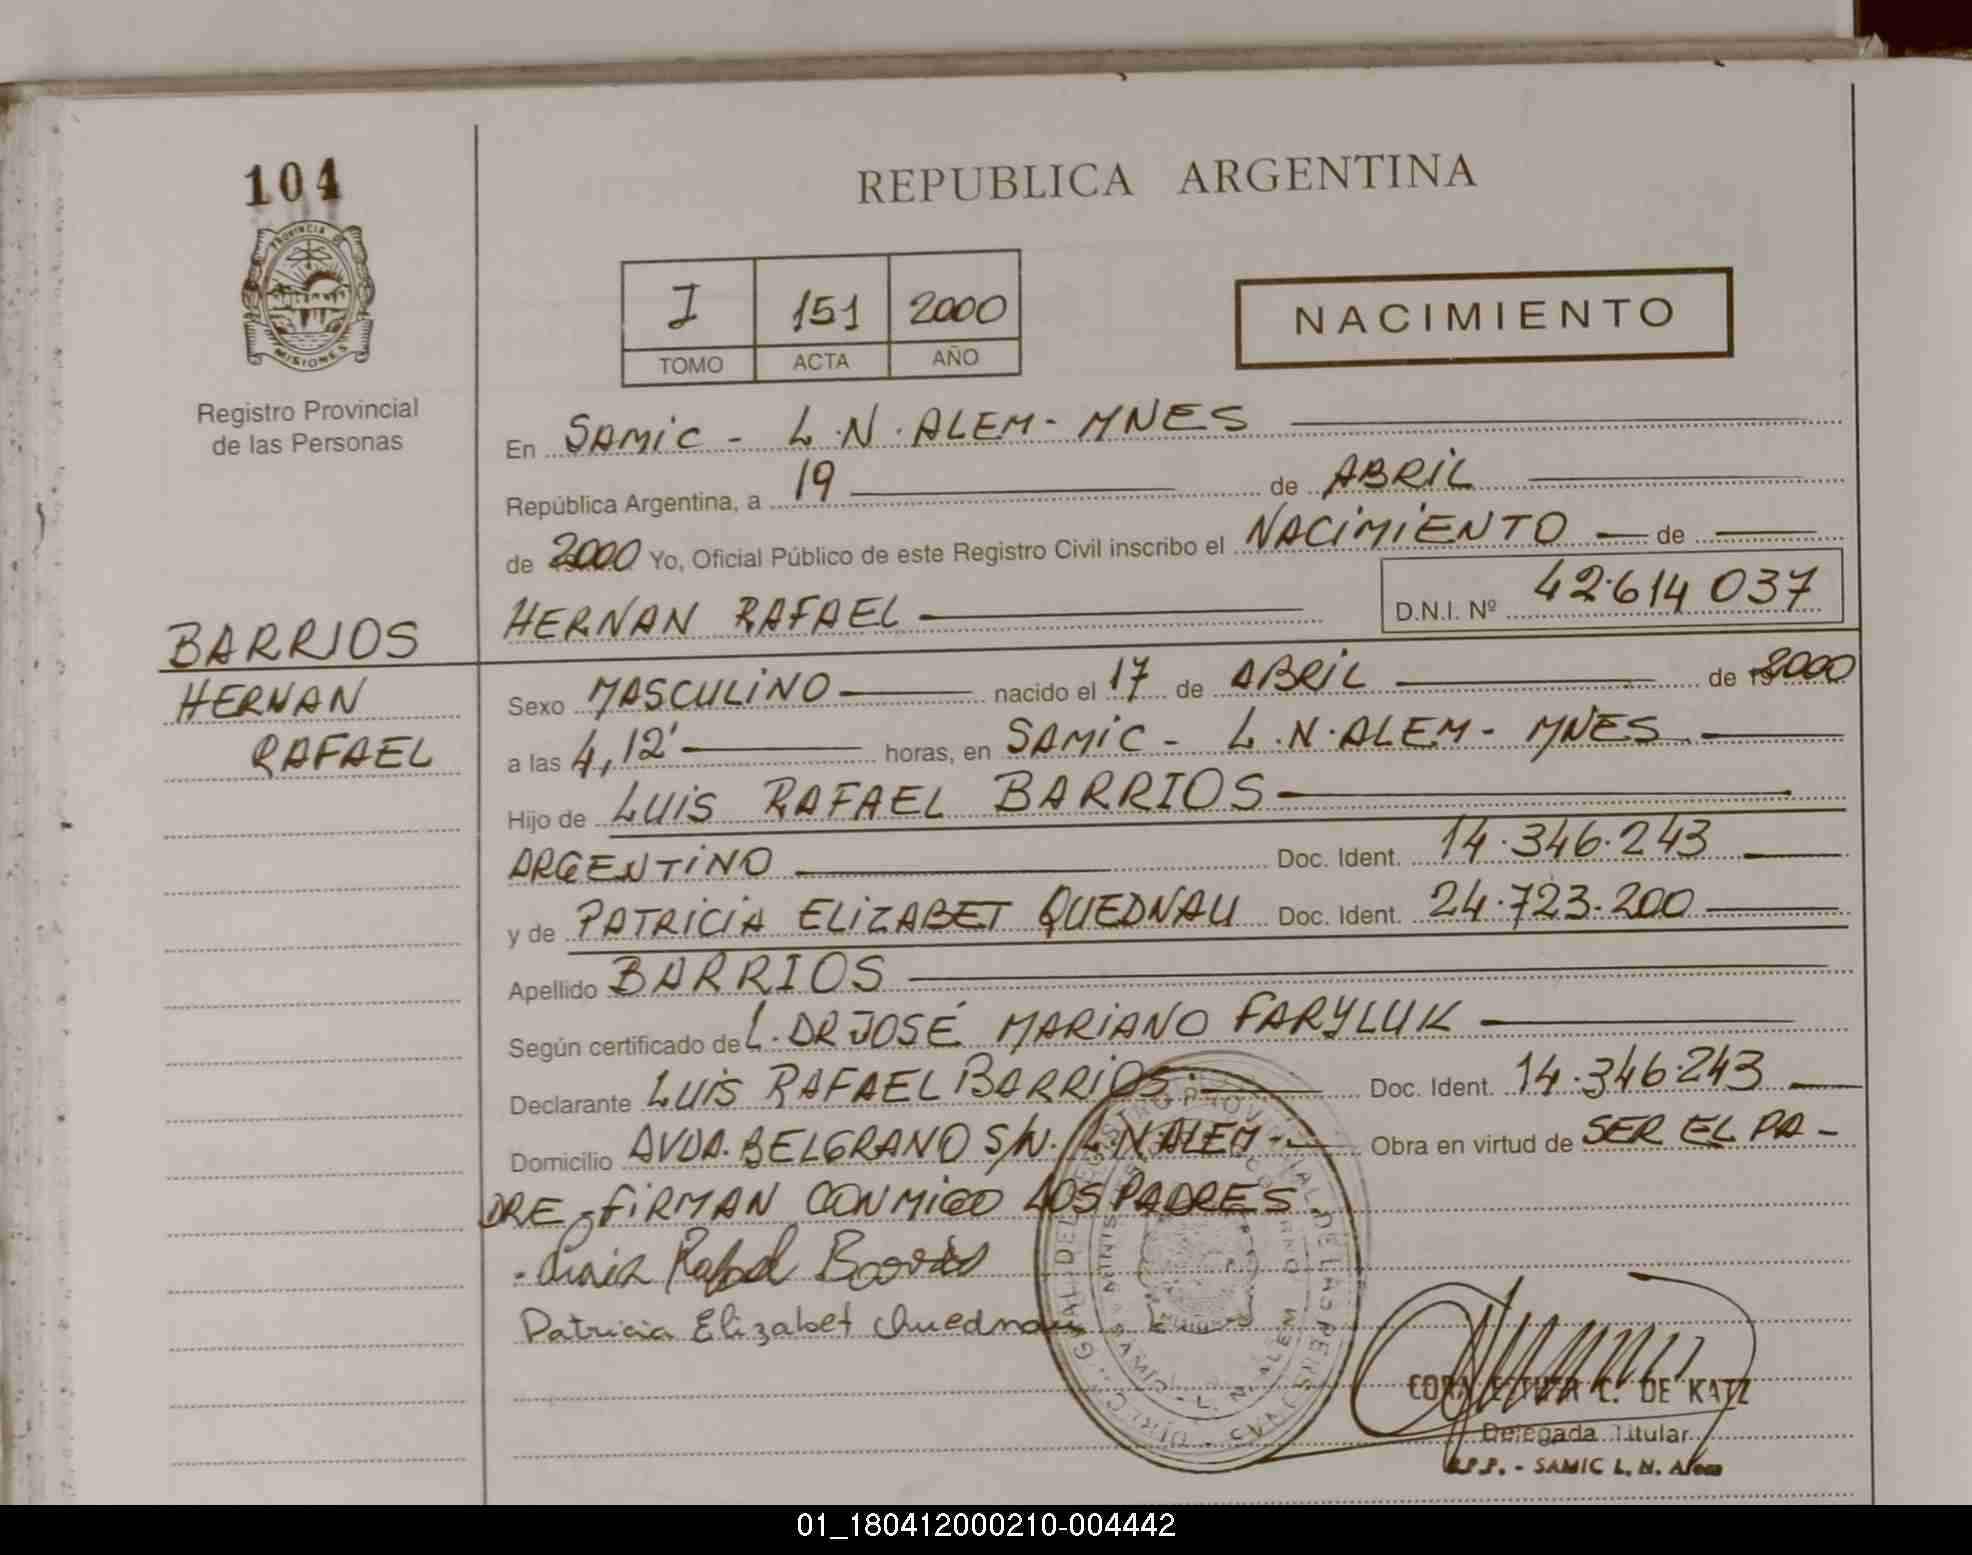 104
PROVINCIA DE
MISIONES
Registro Provincial
de las Personas
BARRIOS
HERNAN
RAFAEL
REPUBLICA ARGENTINA
I 151 2000
TOMO ACTA AÑO
NACIMIENTO
En SAMIC - L.N.ALEM - MNES
República Argentina, a 19 de ABRIL
de 2000 Yo, Oficial Público de este Registro Civil inscribo el NACIMIENTO de
HERNAN RAFAEL D.N.I. Nº 42.614 037
Sexo MASCULINO nacido el 17 de ABRIL de 2000
a las 4,12' horas, en SAMIC - L.N.ALEM - MNES
Hijo de LUIS RAFAEL BARRIOS
ARGENTINO Doc. Ident. 14.346.243
y de PATRICIA ELIZABET QUEDNAU Doc. Ident. 24.723.200
Apellido BARRIOS
Según certificado de L. DR JOSÉ MARIANO FARYLUK
Declarante LUIS RAFAEL BARRIOS. Doc. Ident. 14.346.243
Domicilio AVDA. BELGRANO S/N. L.N ALEM - Obra en virtud de SER EL PA -
DRE - FIRMAN CONMIGO LOS PADRES.
Luis Rafael Barrios
Patricia Elizabet Quednau
SAMIC - L. N. ALEM
CORA ESTHER C. DE KATZ
Delegada Titular
R.P.P. - SAMIC L. N. Alem
01_180412000210-004442